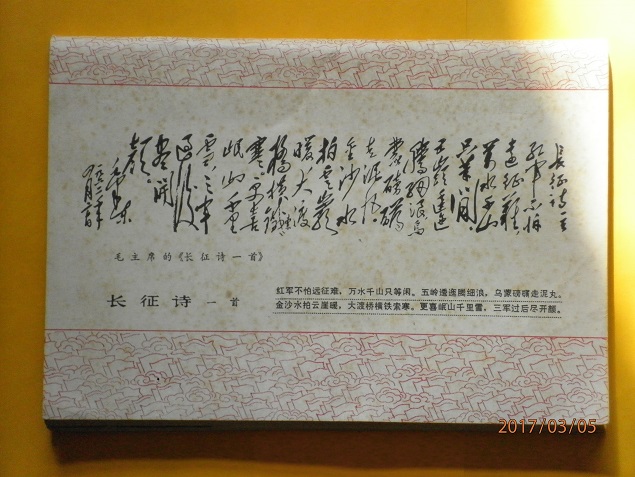 长征诗一首
紅軍不怕
遠征難
萬水千山
只等閒
五嶺逶迤
腾細浪烏
蒙磅礴
走泥丸
金沙水
拍雲崖
暖大渡
橋横鐵索
寒更喜
岷山千里
雪三軍
過後
盡開
顏
毛澤東
毛主席的《长征诗一首》
长征诗一首
红军不怕远征难，万水千山只等闲。五岭逶迤腾细浪，乌蒙磅礴走泥丸。
金沙水拍云崖暖，大渡桥横铁索寒。更喜岷山千里雪，三军过后尽开颜。
2017/03/05